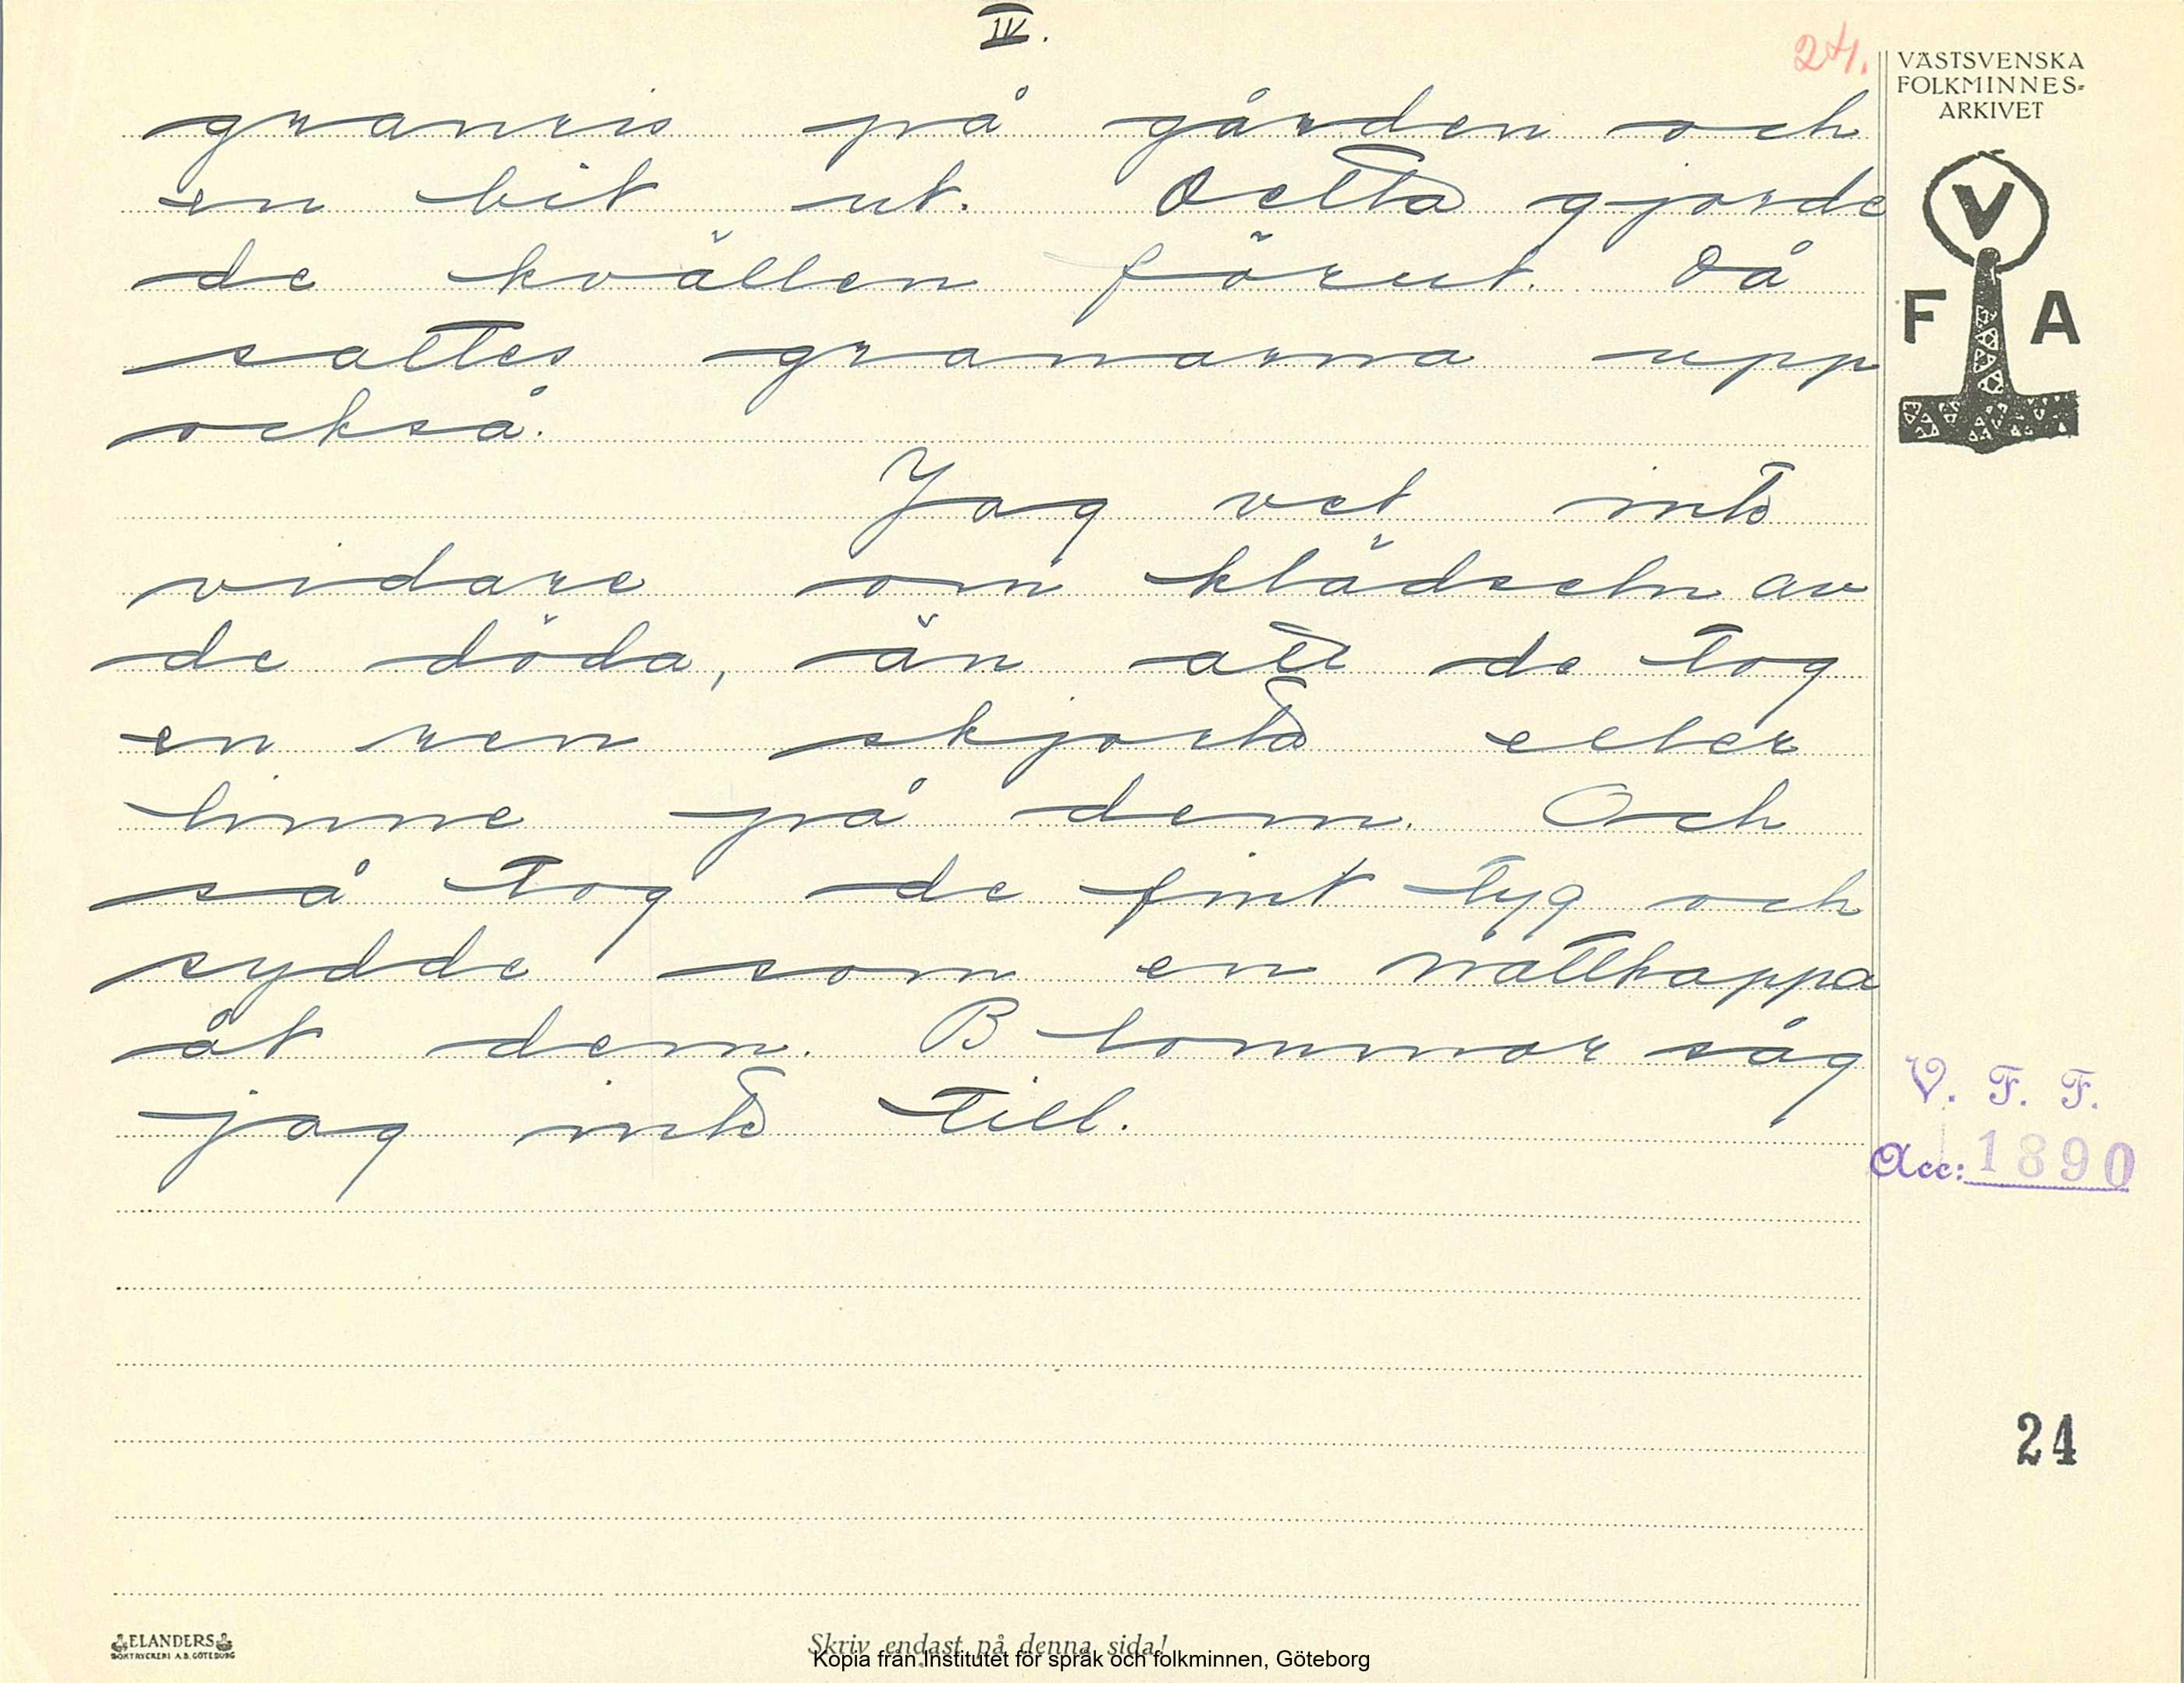 IV.
24.
VÄSTSVENSKA
FOLKMINNES-
ARKIVET
V
F A
granris på gården och
en bit ut. Detta gjorde
de kvällen förut. Då
sattes granarna upp
också.
Jag vet inte
vidare om klädseln av
de döda, än att de tog
en ren skjorta eller
linne på dem. Och
så tog de fint tyg och
sydde som en nattkappa
åt dem. Blommor såg
jag inte till.
V. F. F.
Acc: 1890
24
ELANDERS
BOKTRYCKERI A.B. GÖTEBORG
Skriv endast på denna sida!
Kopia från Institutet för språk och folkminnen, Göteborg